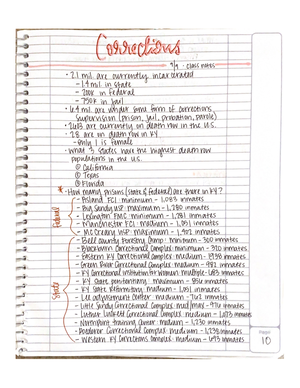 Corrections
9/9 - class notes
• 2.1 mil. are currently incarcerated
- 1.4 mil in state
- 200K in Federal
- 750K in Jail
• 6.4 mil. are under some form of corrections,
supervision (prison, jail, probation, parole)
are currently on death row in the U.S.
• 28 are on death row in KY.
- only 1 is female
• What 3 states have the highest death row
populations in the U.S.
① California
② Texas
③ Florida
* • How many prisons (State & Federal) are there in KY?
Federal
- Ashland FCI: minimum - 1,083 inmates
- Big Sandy USP: maximum - 1,280 inmates
- Lexington FMC: minimum - 1,281 inmates
- Manchester FCI: medium - 1,051 inmates
- McCreary USP: maximum - 1,402 inmates
State
- Bell County Forestry Camp: minimum - 300 inmates
- Blackburn Correctional Complex: minimum - 370 inmates
- Eastern KY Correctional Complex: medium - inmates
- Green River Correctional Complex: medium - 982 inmates
- KY Correctional Institution for Women: multiple - inmates
- KY State penitentiary: maximum - 856 inmates
- KY State Reformatory: medium - 1,051 inmates
- Lee adjustment center: medium - inmates
- Little Sandy Correctional Complex: med/max - inmates
- Luther Luckett Correctional Complex: medium - 1,073 inmates
- Northpoint training center: medium - 1,230 inmates
- Correctional Complex: medium - 1,230 inmates
- Western KY Correctional Complex: medium - 693 inmates
PAGE
10